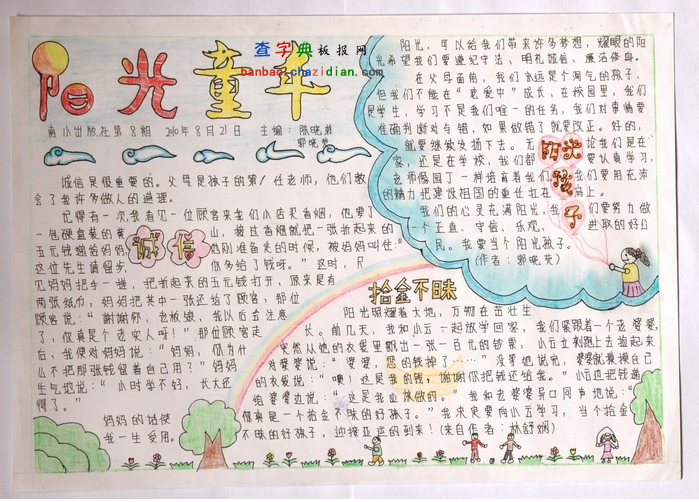 查字典板报网
banbao.chazidian.com
阳光童年
南小出版社第8期 2010年8月21日 主编:陈晓甜
郭晓艾
诚信是很重要的。父母是孩子的第1任老师,他们教
会了我许多做人的道理。
记得有一次,我看见一位顾客来我们小店买香烟,他要了
一包硬盒装的黄山,接过香烟就把一张折起来的
五元钱递给妈妈,
这位先生请留步,你多给了钱呀。"这时,只
见妈妈把手一搓,把折起来的五元钱打开,原来是有
两张纸币,妈妈把其中一张还给了顾客,那位
顾客说:"谢谢你,老板娘,我以后会注意
了,你真是个老实人呀!"那位顾客走
后,我便对妈妈说:"妈妈,你为什
么不把那张钱留着自己用?"妈妈
生气地说:"小时学不好,长大还
得了。"
妈妈的话使
我一生受用。
诚信
阳光,可以给我们带来许多梦想,耀眼的阳
光希望我们要遵纪守法、明礼诚信、廉洁修身。
在父母面前,我们永远是个淘气的孩子,
但我们不能在"宠爱中"成长,在校园里,我们
是学生,学习不是我们唯一的任务,我们对事情要
准确判断对与错,如果做错了就要改正。好的,
就要继续发扬下去。无论我们是在
家,还是在学校,我们都要认真学习,
老师像园丁一样培育着我们,我们要用花赤
的精力把建设祖国的重任扛在肩上。
我们的心灵充满阳光,我们要努力做
一个正直、守信、乐观、进取的好公
民。我要当个阳光孩子。
(作者:郭晓艾)
阳光孩子
拾金不昧
阳光照耀着大地,万物在茁壮生
长。前几天,我和小云一起放学回家,我们紧跟着一个老婆婆,
突然从她的衣袋里飘出一张一百元的钞票,小云立刻跑上去捡起来
对婆婆说:"婆婆,您的钱掉了……"没等他说完,婆婆就摸摸自己
的衣袋说:"噢!这是我的钱,谢谢你把钱还给我。"小云边把钱递
给婆婆边说:"这是我应该做的。"我和老婆婆异口同声地说:"
你真是一个拾金不昧的好孩子。"我决定要向小云学习,当个拾金
不昧的好孩子,迎接亚运的到来!(来自作者:林舒娴)